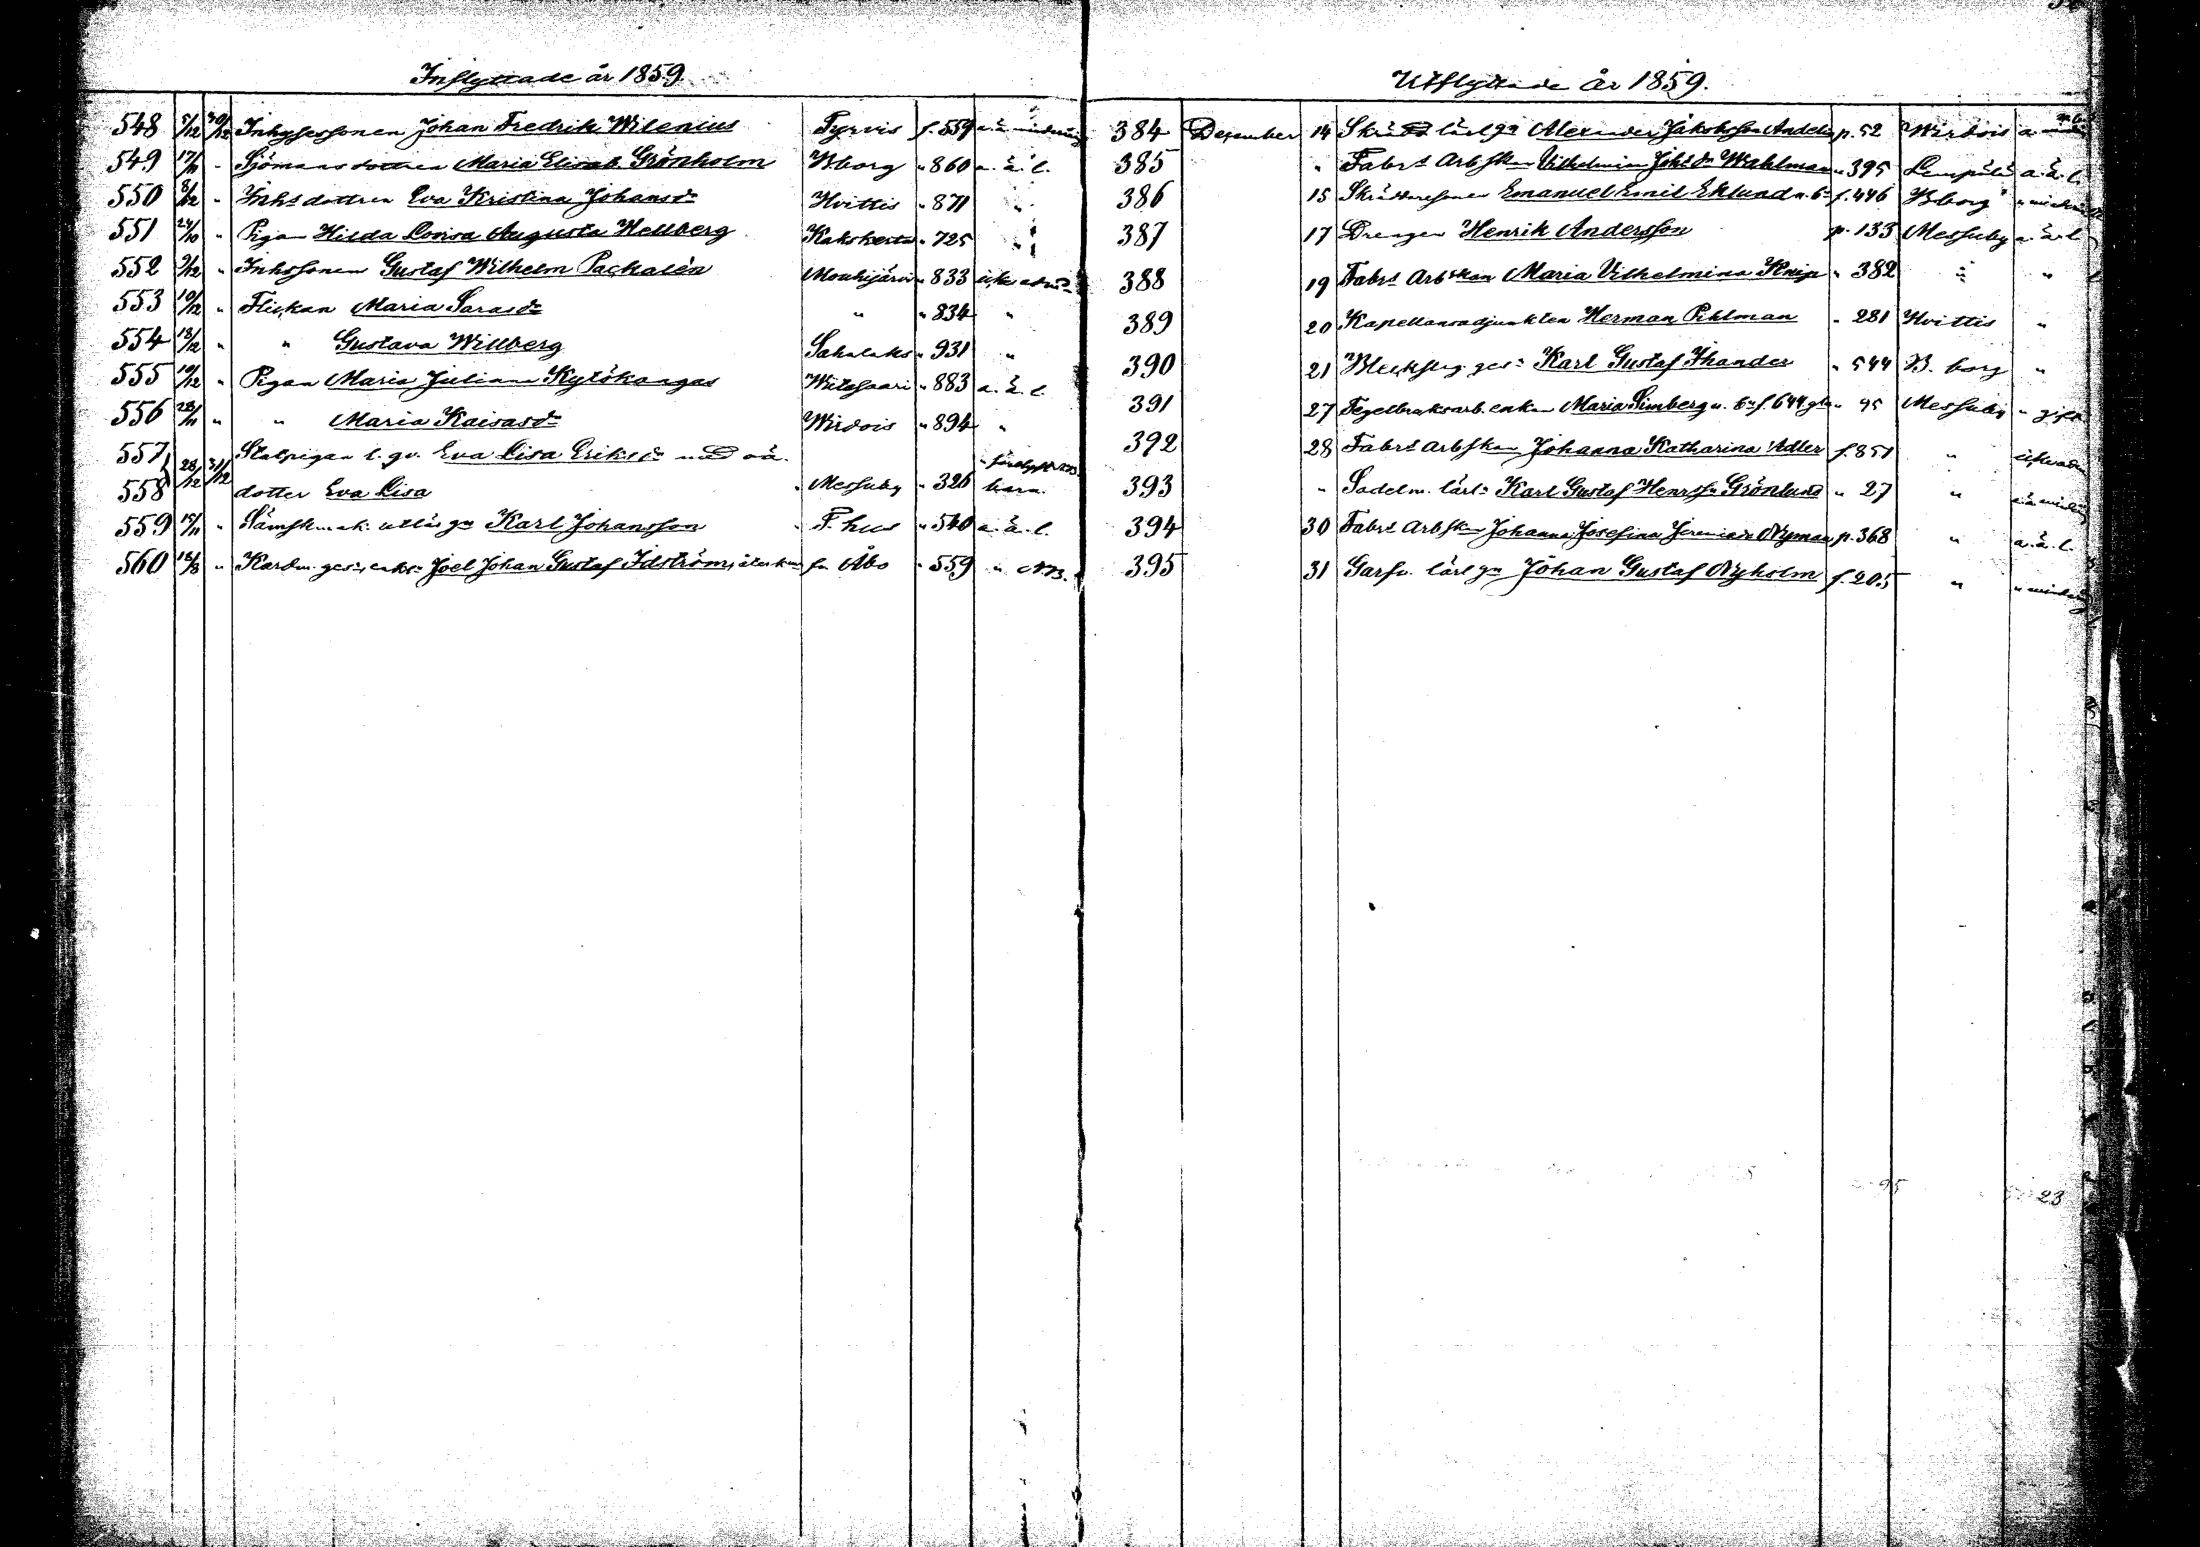 Inflyttade år 1859.
548 5/12 30/12 Inhysessonen Johan Fredrik Wilenius Tyrvis f. 559 a. ä. minderårig
549 17/11 " Sjömansdottren Maria Elisab. Grönholm B:borg " 860 a. ä. l.
550 8/12 " Inhs dottren Eva Kristina Johansdr Hvittis " 871 "
551 24/10 " Pigan Hilda Lovisa Augusta Hellberg Kakskerta " 725 "
552 9/12 " Inhssonen Gustaf Wilhelm Packalén Mouhijärvi " 833 icke adm.
553 10/12 " Flickan Maria Sarasdr " " 834 "
554 13/12 " " Gustava Willberg Sahalaks " 931 "
555 10/12 " Pigan Maria Juliana Kytökangas Witasaari " 883 a. ä. l.
556 28/11 " " Maria Kaisasdr Wirdois " 894 "
557 Stalpigan l. gv. Eva Lisa Eriksdr med oä.
558 28/12 31/12 dotter Eva Lisa Messuby " 326 barn.
559 15/11 " Sämskmak. utlärgn Karl Johansson T.hus " 540 a. ä. l.
560 18/8 " Kardm. ges:n, enkn Joel Johan Gustaf Idström, återkom fr. Åbo " 559 " NB.
Utflyttade År 1859.
384 Dezember 14 Skrädd lärlgn Alexander Jakobsson Andelin p. 52 Wirdois a.
385 " Fabrs Arbskan Vilhelmina Johsdr Wahlman " 395 Lempälä a. ä. l.
386 15 Skräddaresonen Emanuel Emil Eklund u. bn f. 446 B:borg " minderårig
387 17 Drengen Henrik Andersson p. 133 Messuby a. ä. l.
388 19 Fabrs Arbskan Maria Vilhelmina Knip " 382 " "
389 20 Kapellansadjunkten Herman Pihlman " 281 Hvittis "
390 21 Bleckslag. ges:n Karl Gustaf Thander " 544 B. borg "
391 27 Tegelbruksarb. enkan Maria Limberg u. bn f. 644 gla " 95 Messuby " gift
392 28 Fabrs Arbskan Johanna Katharina Adler f. 851 " icke adm.
393 " Sadelm. lärln Karl Gustaf Henrssn Grönlund " 27 " a. ä. minderårig
394 30 Fabrs Arbskan Johanna Josefina Jeremiadr Nyman p. 368 " a. ä. l.
395 31 Garfv. lärlgn Johan Gustaf Nyholm f. 205 " " minderårig
95 23